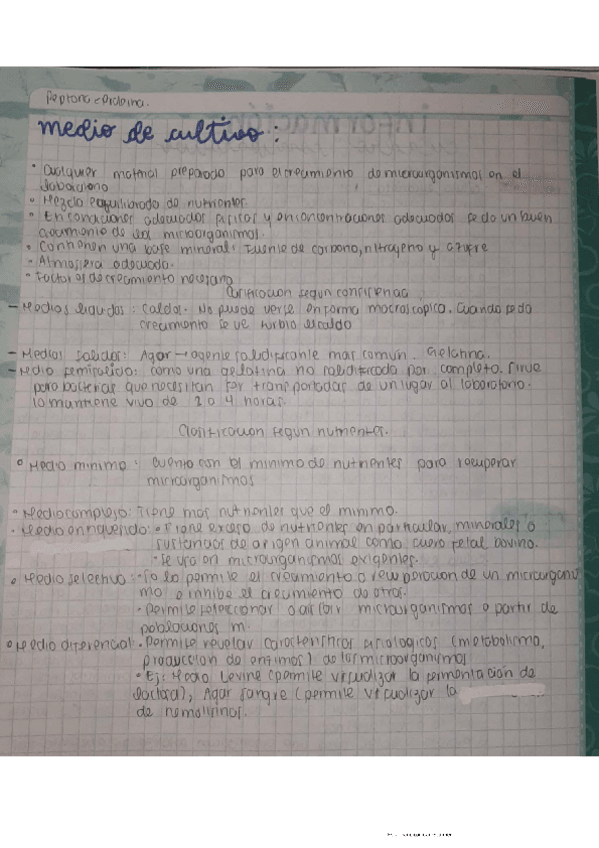 Peptona = Proteina.
medio de cultivo:
• Cualquier material preparado para el crecimiento de microorganismos en el
laboratorio
• Mezcla equilibrada de nutrientes
• En condiciones adecuadas fisicas y en concentraciones adecuadas se da un buen
crecimiento de los microorganismos.
• Contienen una base mineral: Fuente de carbono, nitrogeno y azufre
• Atmosfera adecuada.
• Factores de crecimiento necesario
Clasificacion segun consistencia
- Medios liquidos: Caldos. No puede verse en forma macroscopica. Cuando se da
crecimiento se ve turbio el caldo
- Medios solidos: Agar → agente solidificante mas comun. Gelatina.
- Medio semisolido: como una gelatina no solidificada por completo. Sirve
para bacterias que necesitan ser transportadas de un lugar al laboratorio.
lo mantiene vivo de 2 a 4 horas.
Clasificacion segun nutrientes.
• Medio minimo: cuenta con el minimo de nutrientes para recuperar
microorganismos
• Medio complejo: Tiene mas nutrientes que el minimo.
• Medio enriquecido: • Tiene exceso de nutrientes en particular, minerales o
sustancias de origen animal como suero fetal bovino.
• Se usa en microorganismos exigentes.
• Medio selectivo: • Solo permite el crecimiento o recuperacion de un microorganis
mo e inhibe el crecimiento de otros.
• Permite seleccionar o aislar microorganismos a partir de
poblaciones m.
• Medio diferencial: • Permite revelar caracteristicas fisiologicas (metabolismo,
produccion de enzimas) de los microorganismos
• Ej: Medio Levine (permite visualizar la fermentación de
lactosa), Agar sangre (permite visualizar la
de hemolisinas.